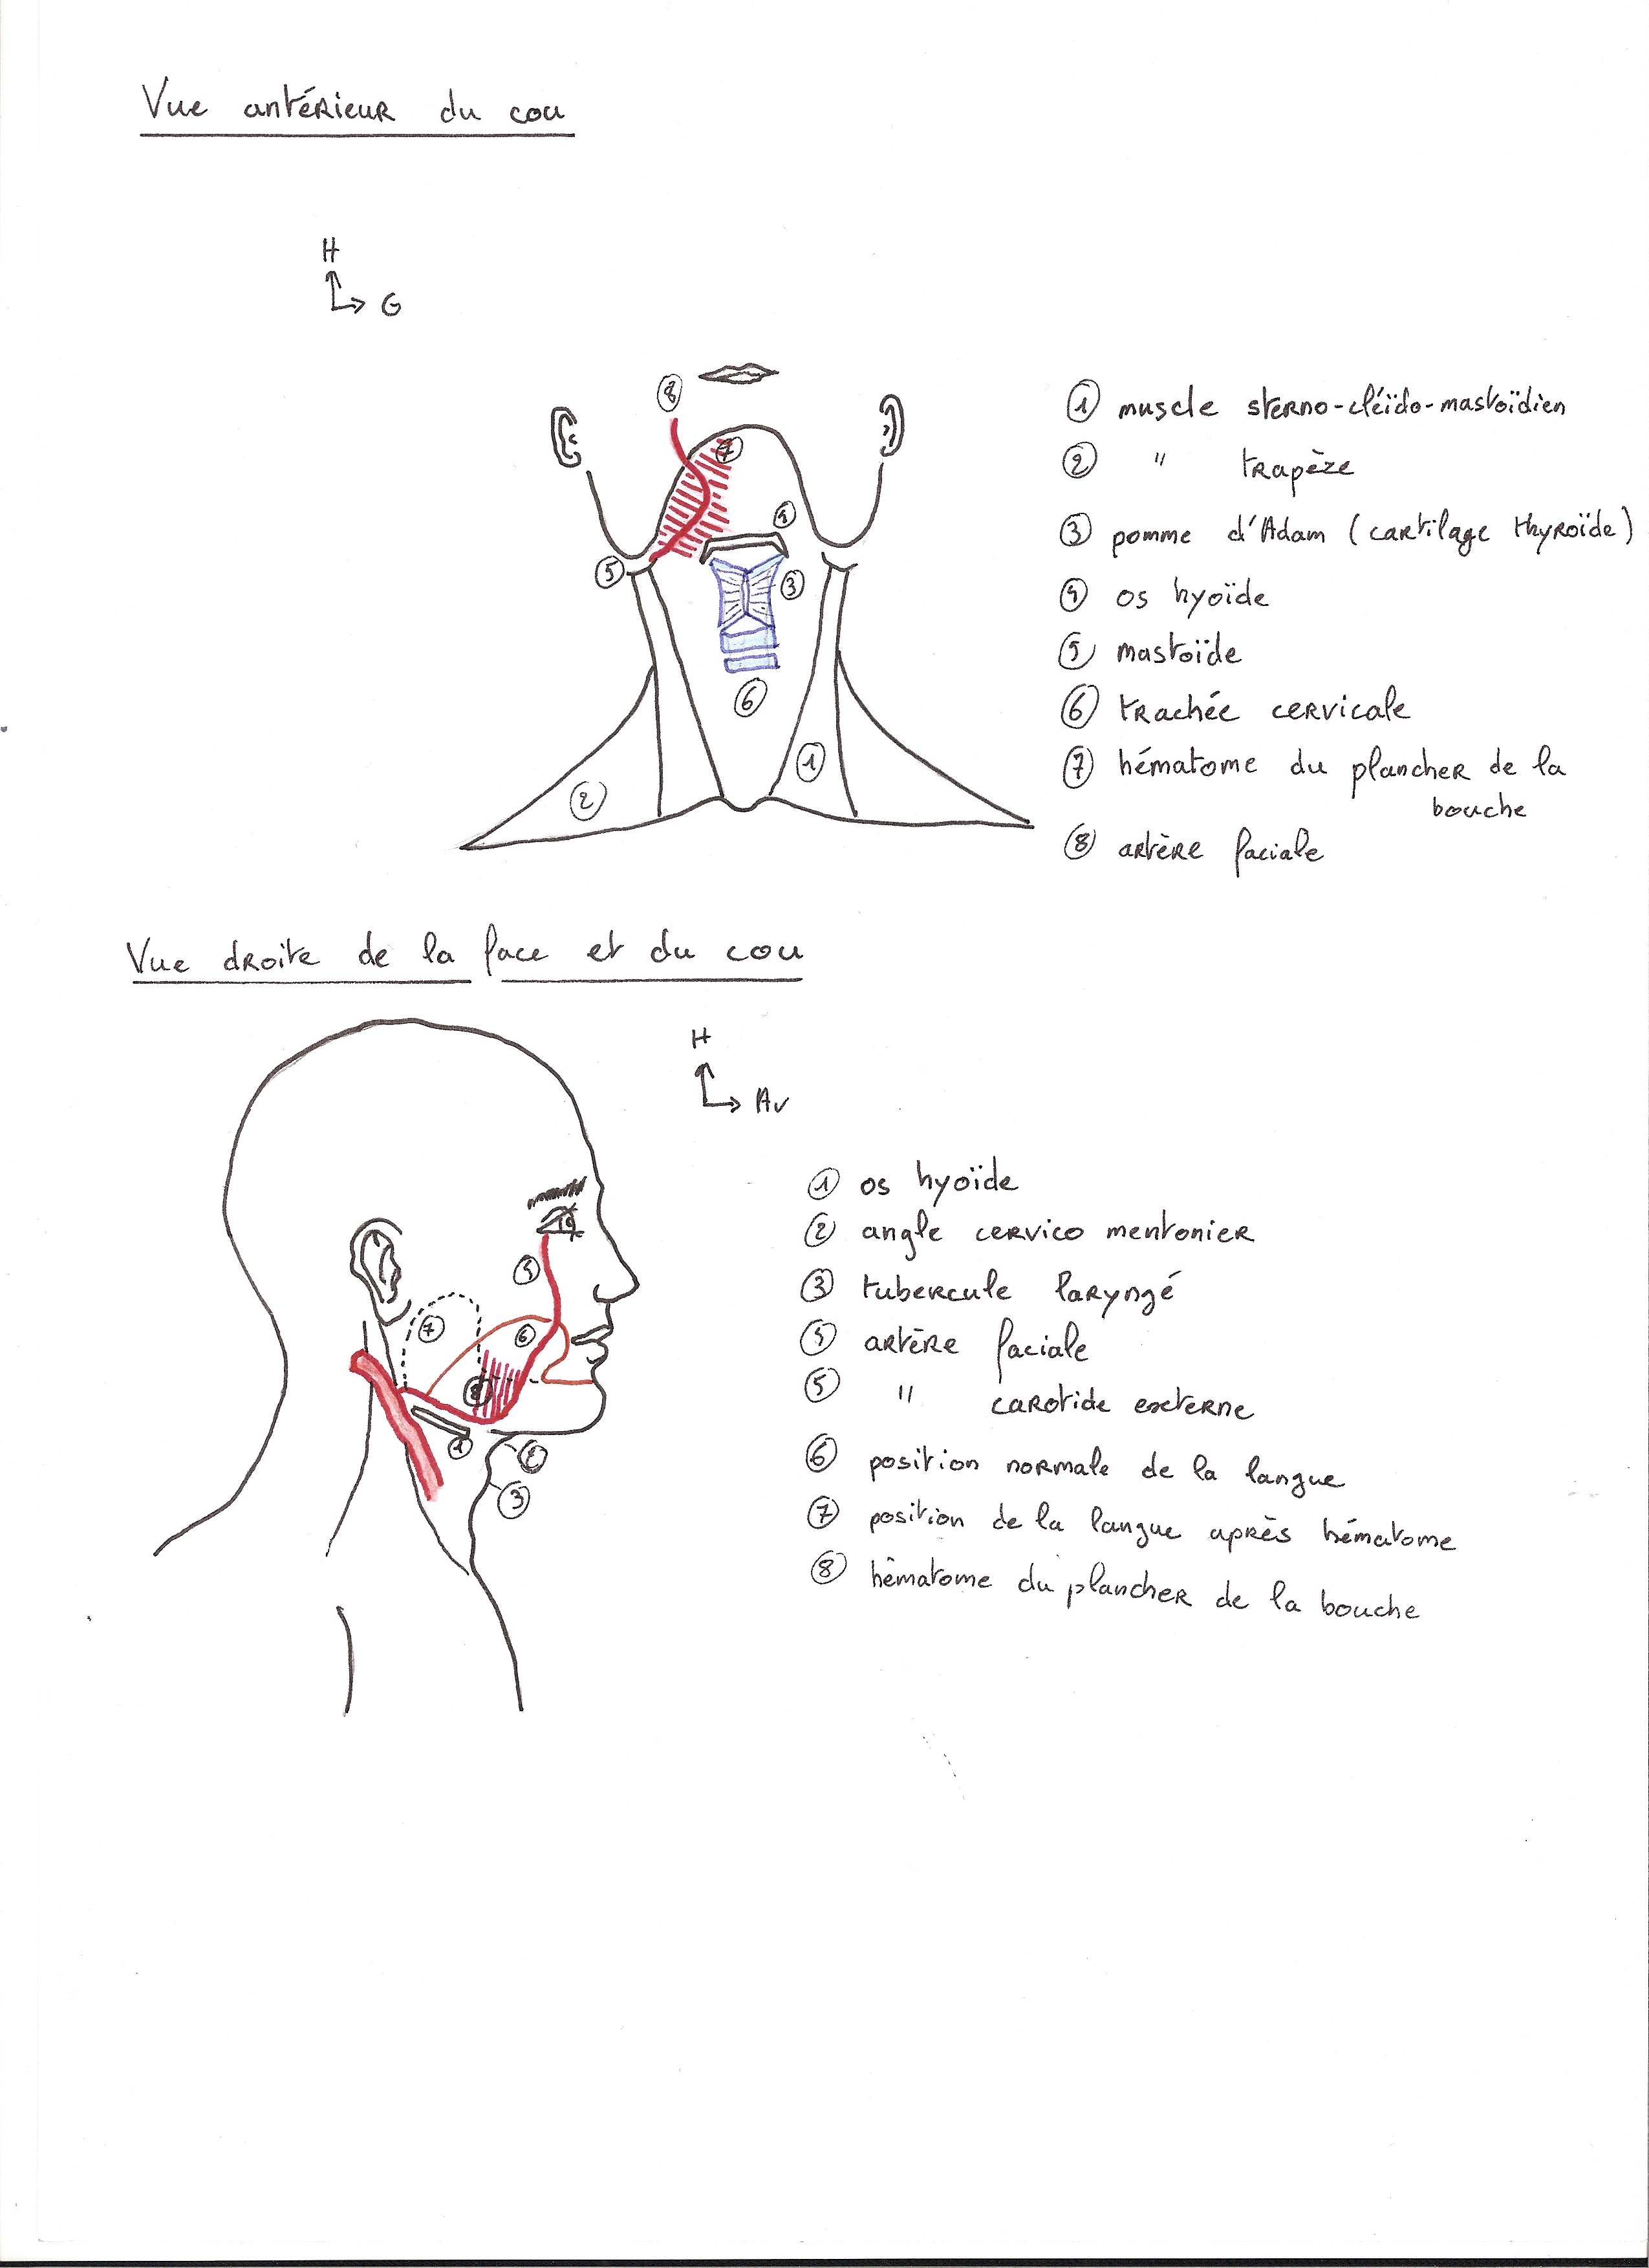 Vue antérieur du cou
H
G
8
7
4
5
3
6
1
2
① muscle sterno-cléïdo-mastoïdien
② " trapèze
③ pomme d'Adam (cartilage thyroïde)
④ os hyoïde
⑤ mastoïde
⑥ trachée cervicale
⑦ hématome du plancher de la
bouche
⑧ artère faciale
Vue droite de la face et du cou
H
Av
5
7
6
8
1
2
3
① os hyoïde
② angle cervico mentonier
③ tubercule laryngé
⑤ artère faciale
⑤ " carotide externe
⑥ position normale de la langue
⑦ position de la langue après hématome
⑧ hématome du plancher de la bouche